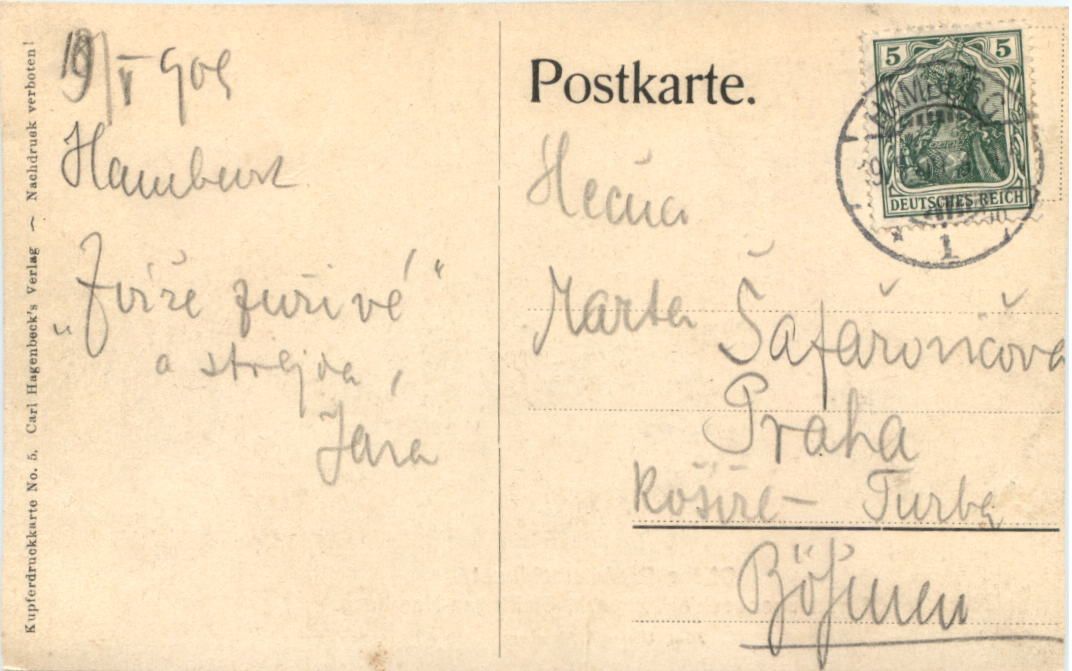 Kupferdruckkarte No. 5, Carl Hagenbeck's Verlag ~ Nachdruck verboten!
19/V 908
Hamburk
„Zvíře zuřivé“
a strejda,
Jára
Postkarte.
5 5
DEUTSCHES REICH
HAMBURG
1
Slečna
Marta Šafařovičova
Praha
Košíře – Turba
Böhmen